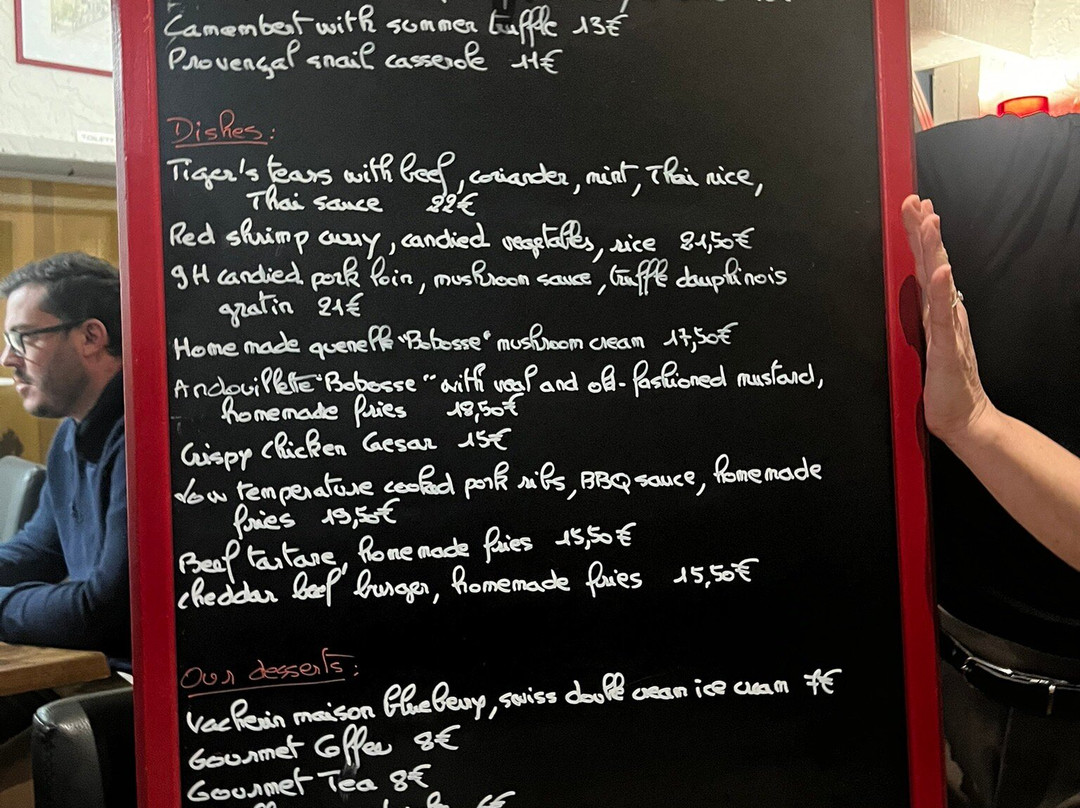 Camembert with summer truffle 13€
Provençal snail casserole 11€
Dishes:
Tiger's tears with beef, coriander, mint, Thai rice,
Thai sauce 22€
Red shrimp curry, candied vegetables, rice 21,50€
9H candied pork loin, mushroom sauce, truffle dauphinois
gratin 21€
Home made quenelle "Bobosse" mushroom cream 17,50€
Andouillette "Bobosse" with veal and old-fashioned mustard,
homemade fries 18,50€
Crispy chicken Caesar 15€
Low temperature cooked pork ribs, BBQ sauce, homemade
fries 19,50€
Beef tartare, homemade fries 15,50€
cheddar beef burger, homemade fries 15,50€
Our desserts:
Vacherin maison blueberry, swiss double cream ice cream 7€
Gourmet Coffee 8€
Gourmet Tea 8€